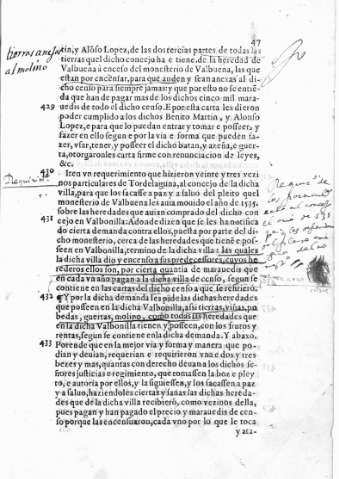 47
tierras anejas
al molino
tin, y Alōso Lopez, de las dos tercias partes de todas las
tierras quel dicho concejo ha e tiene, de la heredad de
Valbuena à censo del monesterio de Valbuena, las que
estan por encensar, para que anden y sean anexas al di-
cho censo para siempre jamas: y que por esto no se entiē-
da que han de pagar mas de los dichos cinco mil mara-
429 uedis de todo el dicho censo. E por esta carta les dieron
poder cumplido a los dichos Benito Martin, y Alonso
Lopez, e para que lo puedan entrar y tomar e posseer, y
fazer en ello segun e por la via e forma que pueden fa-
zer, vsar, tener, y posseer el dicho batan, y azeña, e guer-
ta, otorgaronles carta firme con renunciacion de leyes,
&c.
430 Iten vn requerimento que hizieron veinte y tres vezi-
nos particulares de Tordelaguna, al concejo de la dicha
villa, para que los sacasse a paz y a saluo del pleito quel
monesterio de Valbuena les auia mouido el año de 1535.
sobre las heredades que auian comprado del dicho con
431 cejo en Valbonilla. Adonde dizen que se les ha notifica
do cierta demanda contra ellos, puesta por parte del di-
cho monesterio, cerca de las heredades que tienē e pos-
seen en Valbonilla, termino de la dicha villa: las quales
la dicha villa dio y encenso a sus predecessores, cuyos he
rederos ellos son, por cierta quantia de marauedis que
en cada vn año pagan a la dicha villa de censo, segun se
contiene en las cartas del dicho censo a que se refirierō.
432 Y por la dicha demanda les pide las dichas heredades
que posseen en la dicha Valbonilla, assi tierras, viñas, pa
bedas, guertas, molino, como todas las heredades que
en la dicha Valbonilla tienen y posseen, con los frutos y
rentas, segun se contiene en la dicha demanda. Y abaxo.
433 Por ende que en la mejor via y forma y manera que po-
dian y deuian, requerian e requirieron vna e dos y tres
bezes y mas, quantas con derecho deuian a los dichos se-
ñores justicia e regimiento, que tomassen la boz e pley
to, e autoria por ellos, y la siguiessen, y los sacassen a paz
y a saluo, haziendoles ciertas y sanas las dichas hereda-
des que de la dicha villa recibierō, como vezinos della,
pues pagan y han pagado el precio y marauedis de cen-
so porque las encensuaron, cada vno por lo que le toca
y ata-